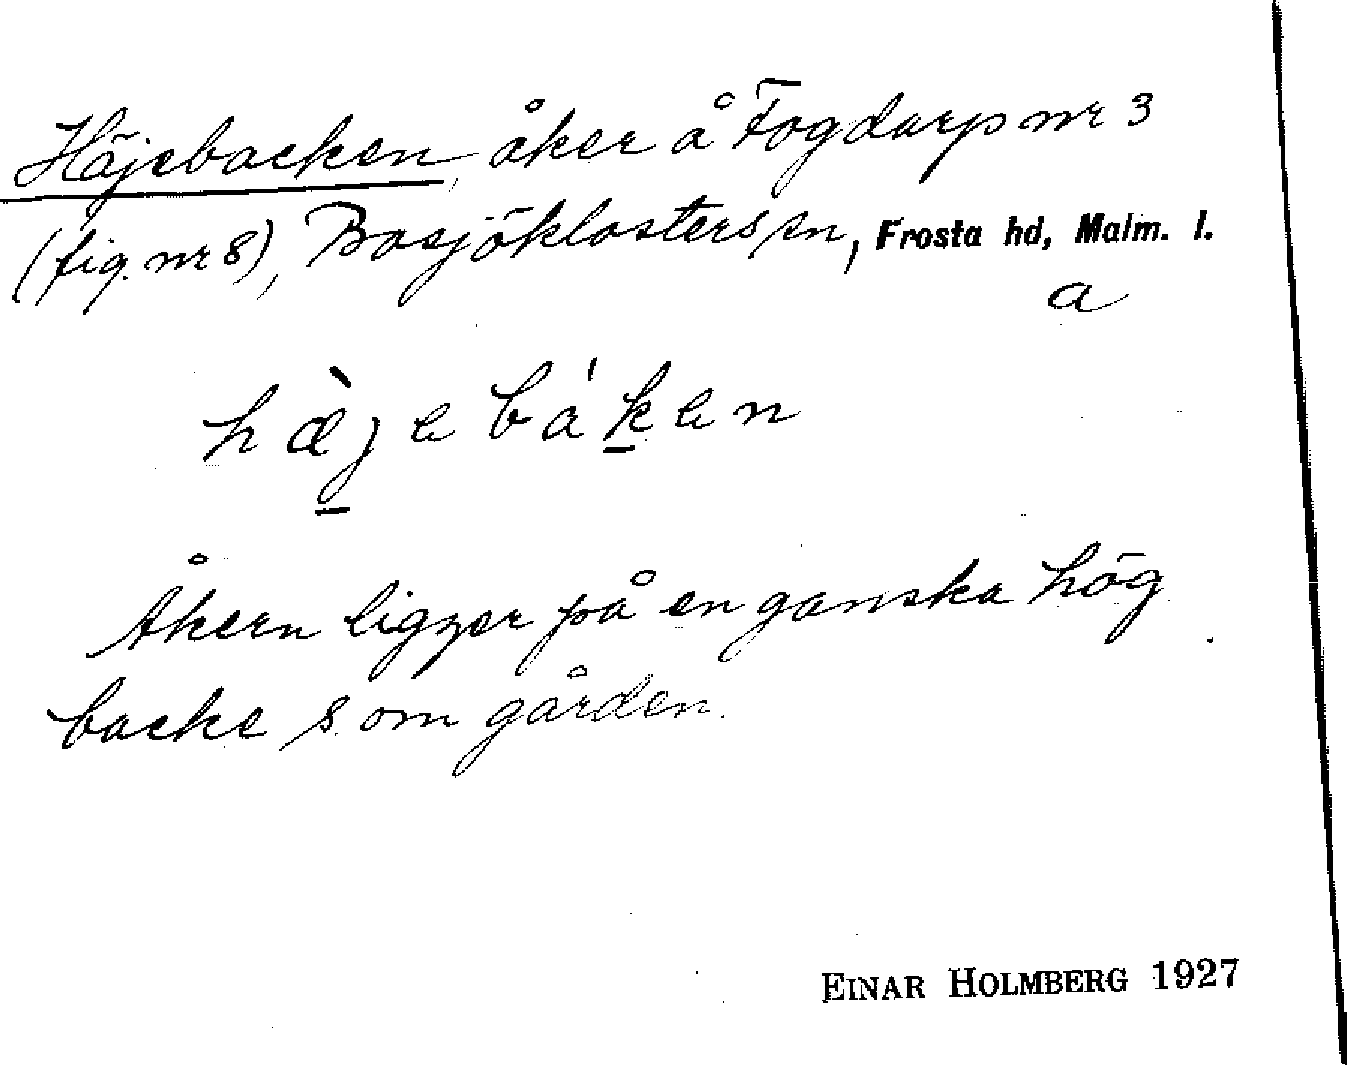 Häjebacken, åker å Fogdarp nr 3
(fig. nr 8), Bosjöklosters sn, Frosta hd, Malm. l.
a
hæ̀jebáken
Åkern ligger på en ganska hög
backe som gården.
EINAR HOLMBERG 1927